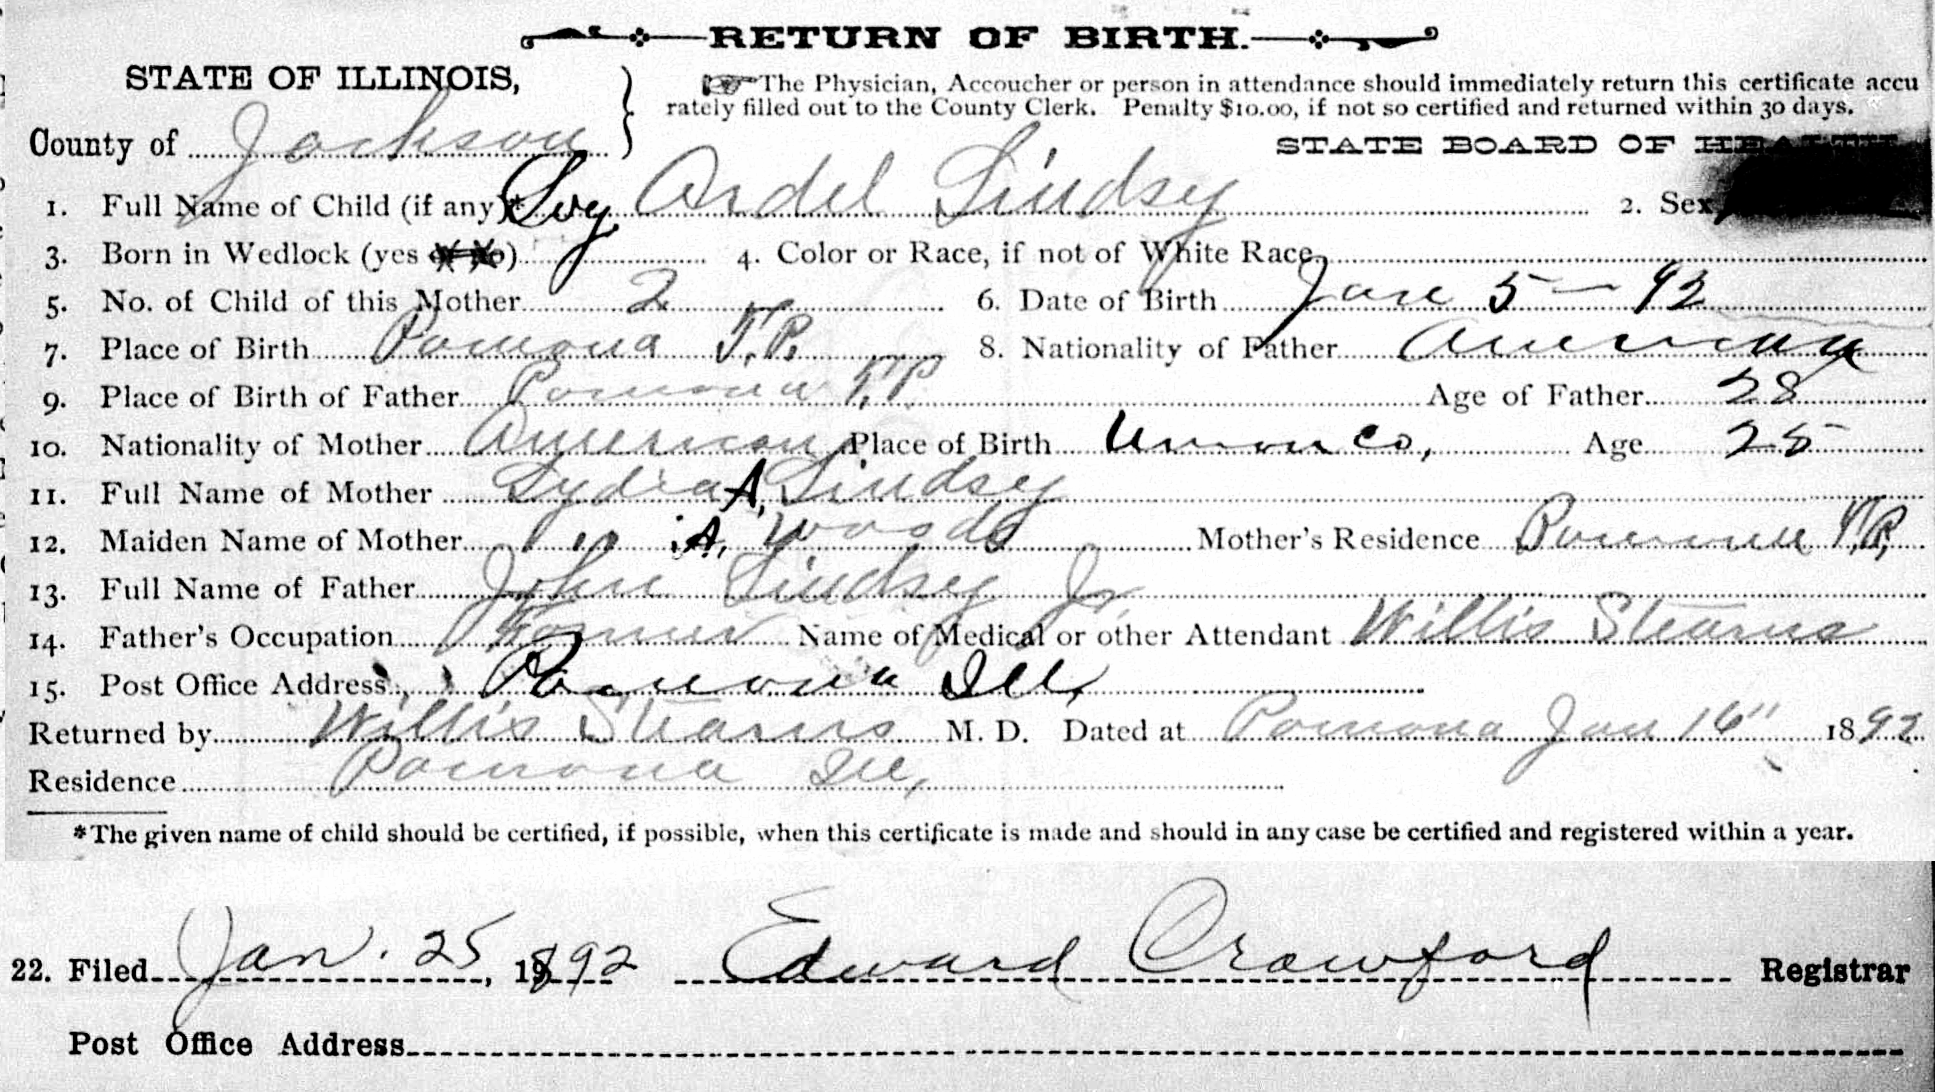 RETURN OF BIRTH.
STATE OF ILLINOIS,
The Physician, Accoucher or person in attendance should immediately return this certificate accu
rately filled out to the County Clerk. Penalty $10.00, if not so certified and returned within 30 days.
County of Jackson
STATE BOARD OF HEALTH
1. Full Name of Child (if any)* Ivy Ardel Lindsey 2. Sex
3. Born in Wedlock (yes or no) 4. Color or Race, if not of White Race
5. No. of Child of this Mother 2 6. Date of Birth Jan 5 – 92
7. Place of Birth Pomona T.P. 8. Nationality of Father American
9. Place of Birth of Father Pomona T.P. Age of Father 28
10. Nationality of Mother American Place of Birth Union Co, Age 25
11. Full Name of Mother Lydia A, Lindsey
12. Maiden Name of Mother " A, Woods Mother's Residence Pomona T.P.
13. Full Name of Father John Lindsey Jr,
14. Father's Occupation Farmer Name of Medical or other Attendant Willis Stearns
15. Post Office Address, Pomona Ill,
Returned by Willis Stearns M. D. Dated at Pomona Jan 16" 1892
Residence Pomona Ill,
*The given name of child should be certified, if possible, when this certificate is made and should in any case be certified and registered within a year.
22. Filed Jan. 25, 1892 Edward Crawford Registrar
Post Office Address